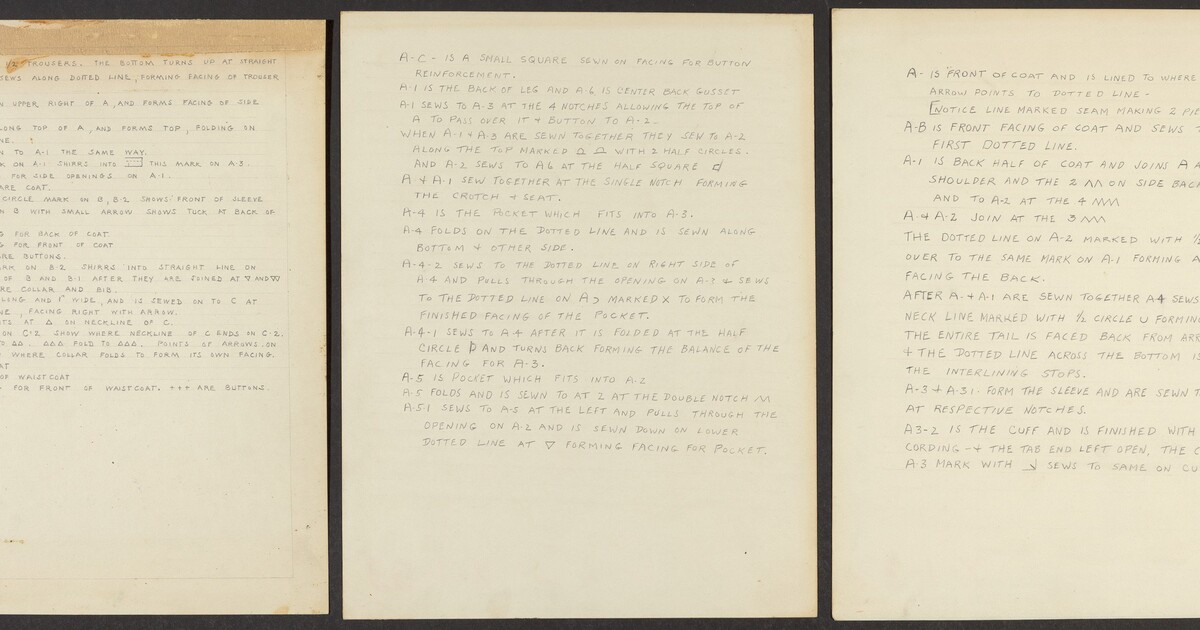 1/2 TROUSERS. THE BOTTOM TURNS UP AT STRAIGHT
SEWS ALONG DOTTED LINE, FORMING FACING OF TROUSER
UPPER RIGHT OF A, AND FORMS FACING OF SIDE
LONG TOP OF A, AND FORMS TOP, FOLDING ON
NE.
N TO A-1 THE SAME WAY.
K ON A-1 SHIRRS INTO THIS MARK ON A-3.
FOR SIDE OPENINGS ON A-1.
ARE COAT.
CIRCLE MARK ON B, B-2 SHOWS FRONT OF SLEEVE
N B WITH SMALL ARROW SHOWS TUCK AT BACK OF
S FOR BACK OF COAT
G FOR FRONT OF COAT
ARE BUTTONS.
ARK ON B-2 SHIRRS INTO STRAIGHT LINE ON
OF B AND B-1 AFTER THEY ARE JOINED AT ▽ AND ▽▽
RE COLLAR AND BIB.
LONG AND 1" WIDE, AND IS SEWED ON TO C AT
NE, FACING RIGHT WITH ARROW.
TS AT △ ON NECKLINE OF C.
ON C-2 SHOW WHERE NECKLINE OF C ENDS ON C-2.
△△. △△△ FOLD TO △△△. POINTS OF ARROWS ON
WHERE COLLAR FOLDS TO FORM ITS OWN FACING.
AT
OF WAISTCOAT
- FOR FRONT OF WAISTCOAT. +++ ARE BUTTONS.
A-C - IS A SMALL SQUARE SEWN ON FACING FOR BUTTON
REINFORCEMENT.
A-1 IS THE BACK OF LEG AND A-6 IS CENTER BACK GUSSET
A-1 SEWS TO A-3 AT THE 4 NOTCHES ALLOWING THE TOP OF
A TO PASS OVER IT + BUTTON TO A-2.
WHEN A-1 + A-3 ARE SEWN TOGETHER THEY SEW TO A-2
ALONG THE TOP MARKED WITH 2 HALF CIRCLES.
AND A-2 SEWS TO A6 AT THE HALF SQUARE
A + A-1 SEW TOGETHER AT THE SINGLE NOTCH FORMING
THE CROTCH + SEAT.
A-4 IS THE POCKET WHICH FITS INTO A-3.
A-4 FOLDS ON THE DOTTED LINE AND IS SEWN ALONG
BOTTOM + OTHER SIDE.
A-4-2 SEWS TO THE DOTTED LINE ON RIGHT SIDE OF
A-4 AND PULLS THROUGH THE OPENING ON A-3 + SEWS
TO THE DOTTED LINE ON A3 MARKED X TO FORM THE
FINISHED FACING OF THE POCKET.
A-4-1 SEWS TO A-4 AFTER IT IS FOLDED AT THE HALF
CIRCLE AND TURNS BACK FORMING THE BALANCE OF THE
FACING FOR A-3.
A-5 IS POCKET WHICH FITS INTO A-2
A-5 FOLDS AND IS SEWN TO AT 2 AT THE DOUBLE NOTCH
A-5-1 SEWS TO A-5 AT THE LEFT AND PULLS THROUGH THE
OPENING ON A-2 AND IS SEWN DOWN ON LOWER
DOTTED LINE AT ▽ FORMING FACING FOR POCKET.
A - IS FRONT OF COAT AND IS LINED TO WHERE
ARROW POINTS TO DOTTED LINE -
[NOTICE LINE MARKED SEAM MAKING 2 PIE
A-B IS FRONT FACING OF COAT AND SEWS
FIRST DOTTED LINE.
A-1 IS BACK HALF OF COAT AND JOINS A A
SHOULDER AND THE 2 ON SIDE BACK
AND TO A-2 AT THE 4
A + A-2 JOIN AT THE 3
THE DOTTED LINE ON A-2 MARKED WITH 1/2
OVER TO THE SAME MARK ON A-1 FORMING A
FACING THE BACK.
AFTER A + A-1 ARE SEWN TOGETHER A4 SEWS
NECK LINE MARKED WITH 1/2 CIRCLE U FORMING
THE ENTIRE TAIL IS FACED BACK FROM ARR
+ THE DOTTED LINE ACROSS THE BOTTOM IS
THE INTERLINING STOPS.
A-3 + A-31 - FORM THE SLEEVE AND ARE SEWN T
AT RESPECTIVE NOTCHES.
A3-2 IS THE CUFF AND IS FINISHED WITH
CORDING - + THE TAB END LEFT OPEN, THE C
A-3 MARK WITH SEWS TO SAME ON CU